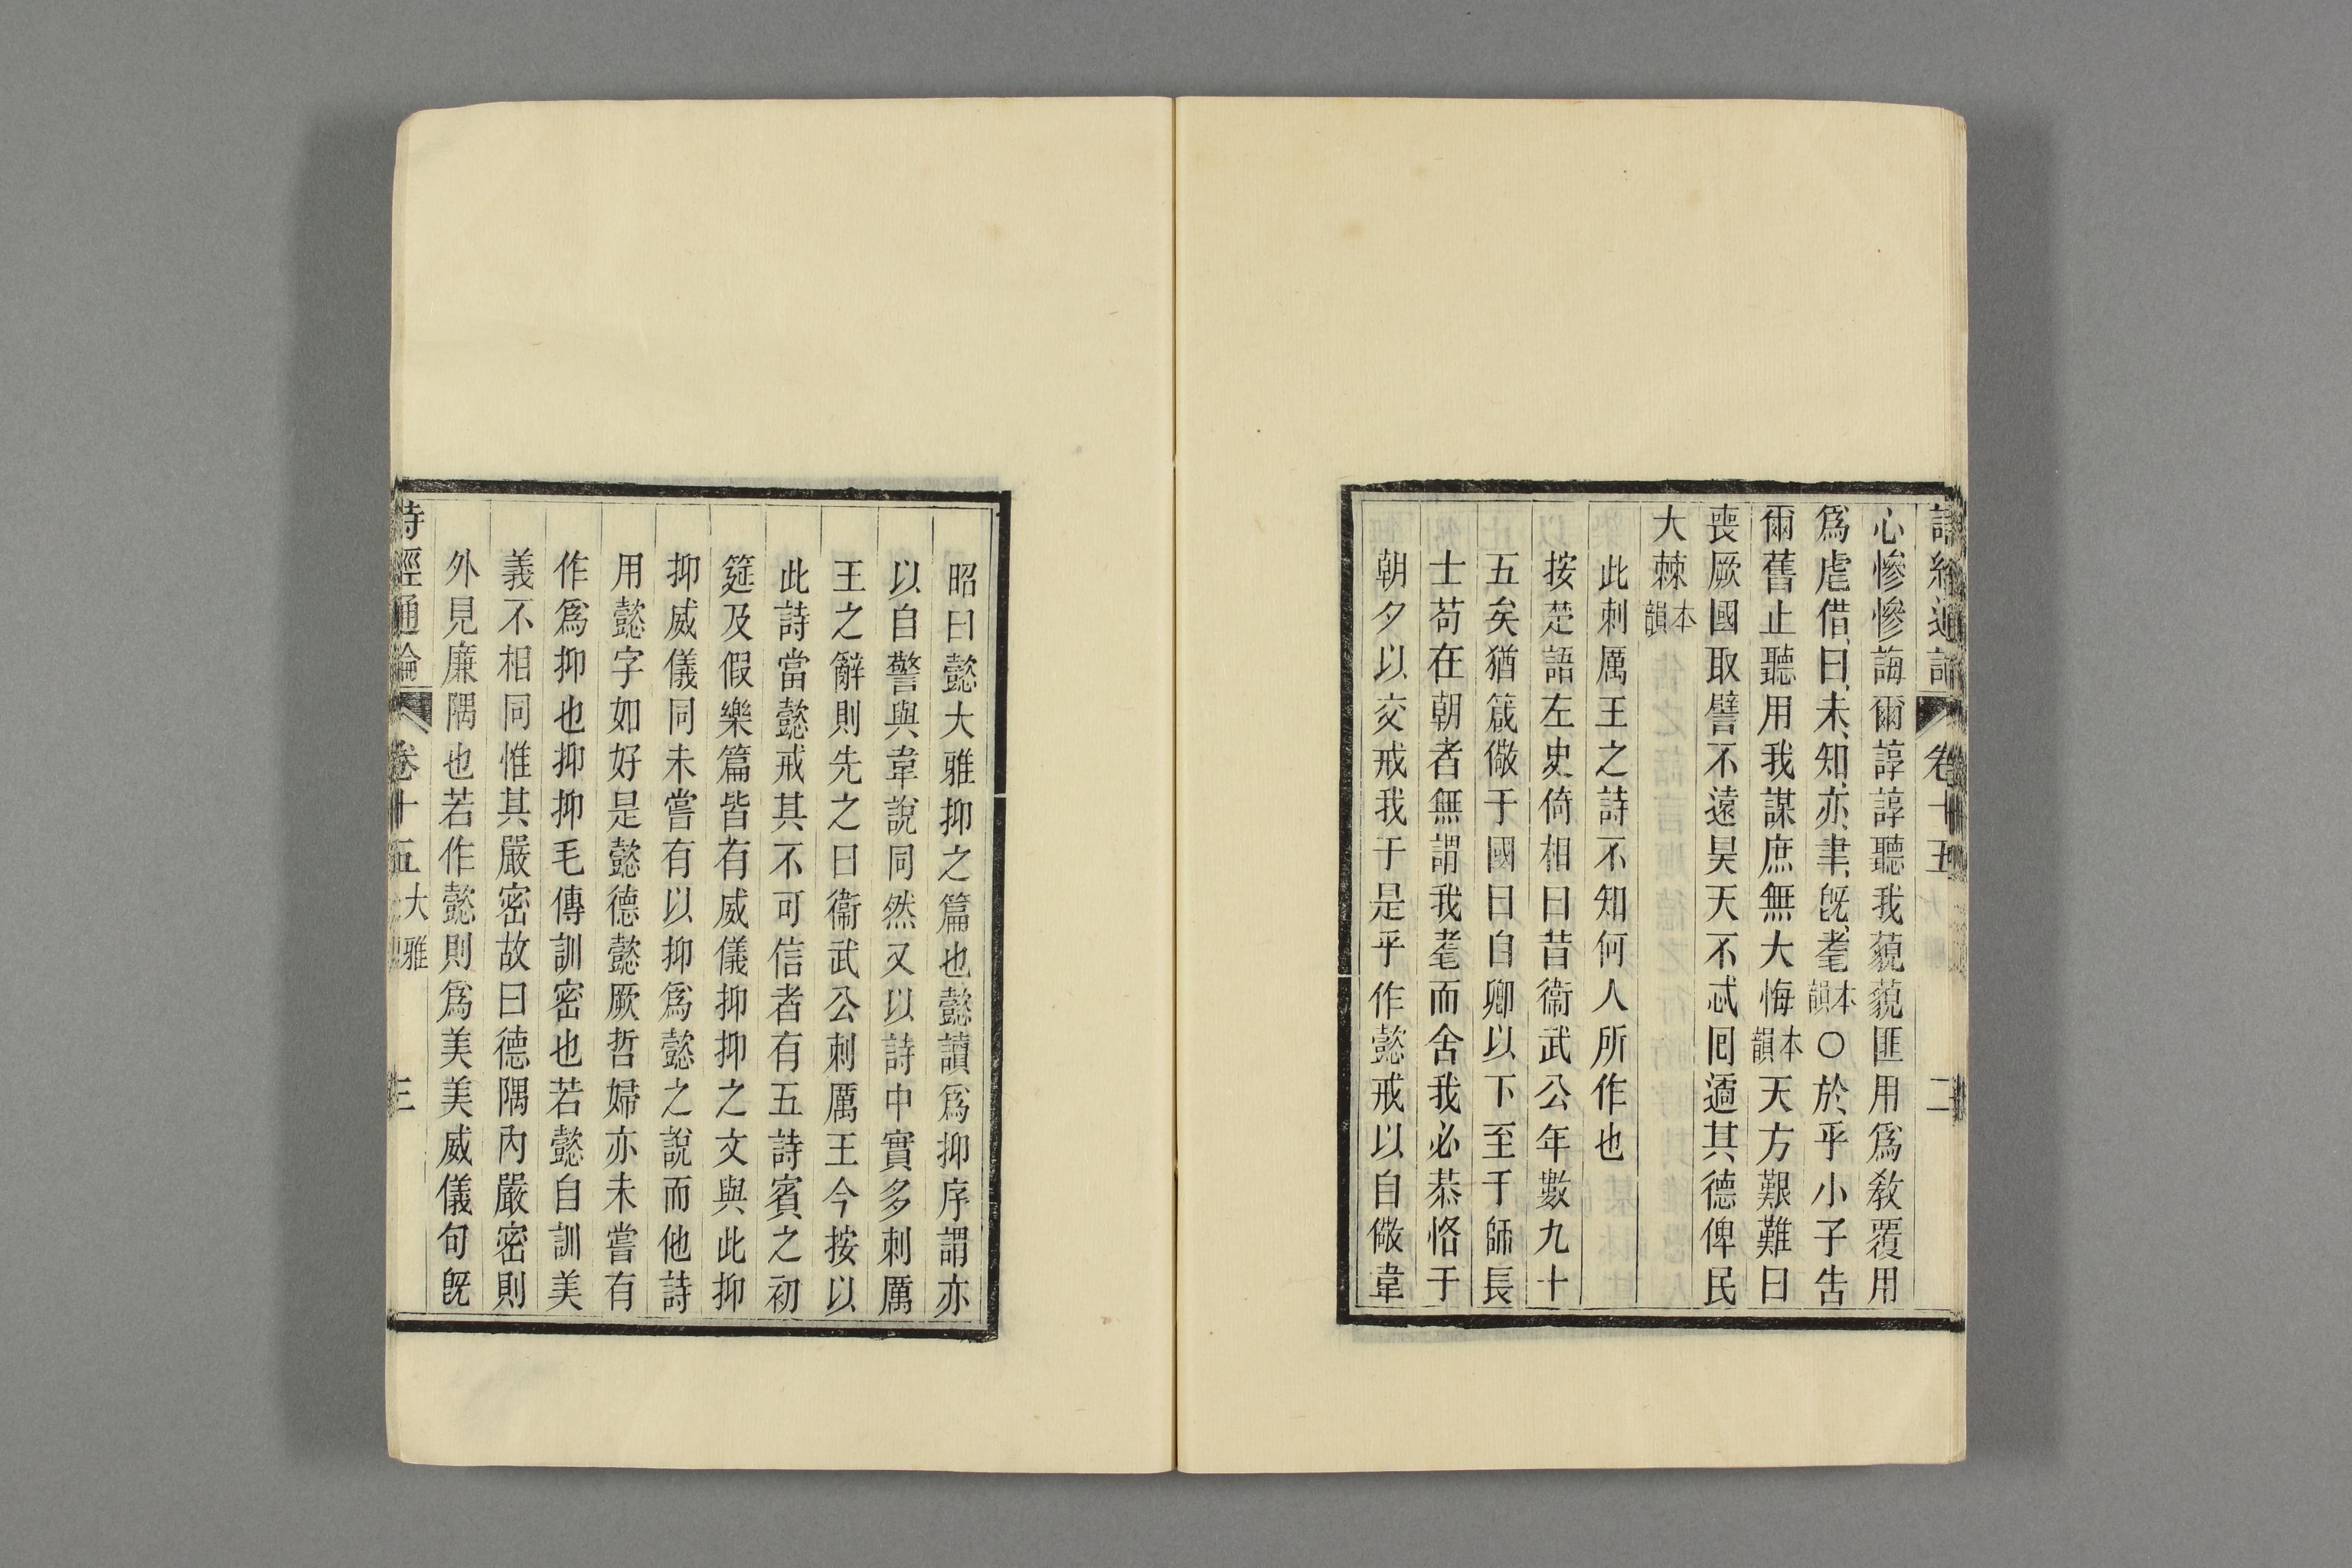 心慘慘誨爾諄諄聽我藐藐匪用爲敎覆用
爲虐借曰未知亦聿旣耄本韻〇於乎小子告
爾舊止聽用我謀庶無大悔本韻天方艱難曰
喪厥國取譬不遠昊天不忒囘遹其德俾民
大棘本韻
此刺厲王之詩不知何人所作也
按楚語左史倚相曰昔衞武公年數九十
五矣猶箴儆于國曰自卿以下至于師長
士苟在朝者無謂我耄而舍我必恭恪于
朝夕以交戒我于是乎作懿戒以自儆韋
昭曰懿大雅抑之篇也懿讀爲抑序謂亦
以自警與韋說同然又以詩中實多刺厲
王之辭則先之曰衞武公刺厲王今按以
此詩當懿戒其不可信者有五詩賓之初
筵及假樂篇皆有威儀抑抑之文與此抑
抑威儀同未嘗有以抑爲懿之說而他詩
用懿字如好是懿德懿厥哲婦亦未嘗有
作爲抑也抑抑毛傳訓密也若懿自訓美
義不相同惟其嚴密故曰德隅內嚴密則
外見廉隅也若作懿則爲美美威儀句旣
詩經通論 卷十五 大雅 三